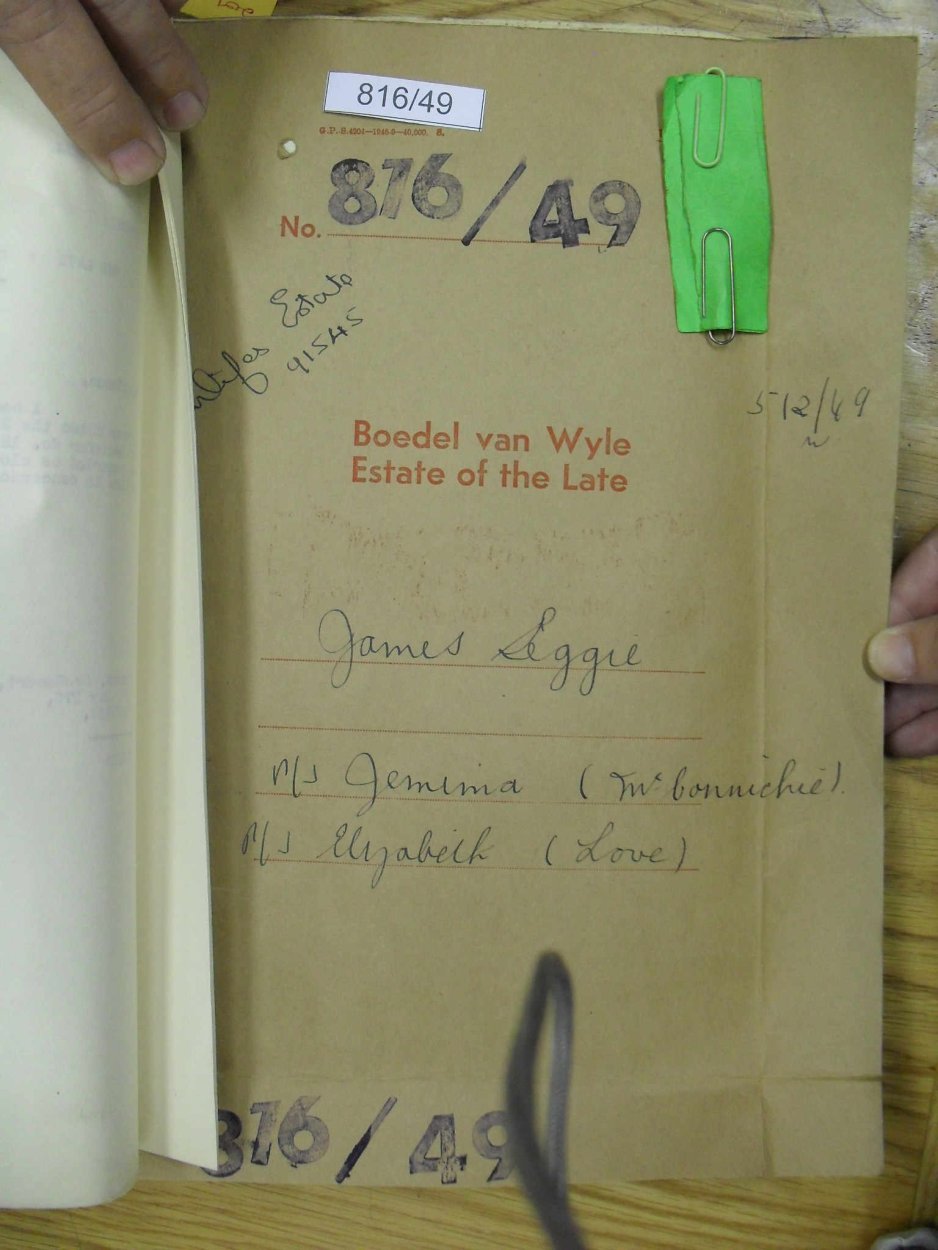 816/49
G.P.-S.4204—1946-9—40,000. S.
No. 816/49
Wifes Estate
91545
512/49
Boedel van Wyle
Estate of the Late
James Leggie
n/s Jemima (McConnichie).
n/s Elizabeth (Love)
816/49